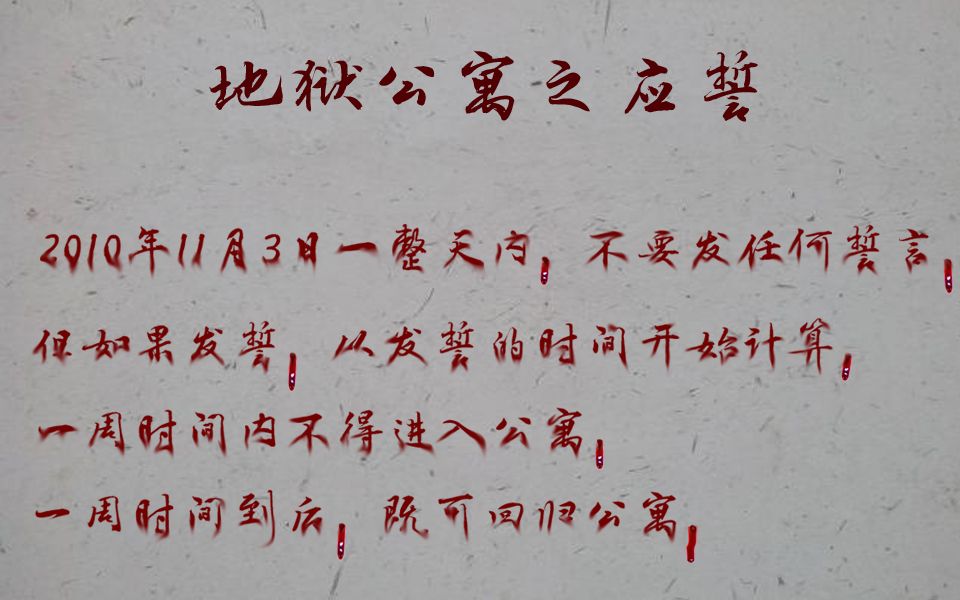 地狱公寓之应誓
2010年11月3日一整天内，不要发任何誓言，
但如果发誓，以发誓的时间开始计算，
一周时间内不得进入公寓，
一周时间到后，既可回归公寓，